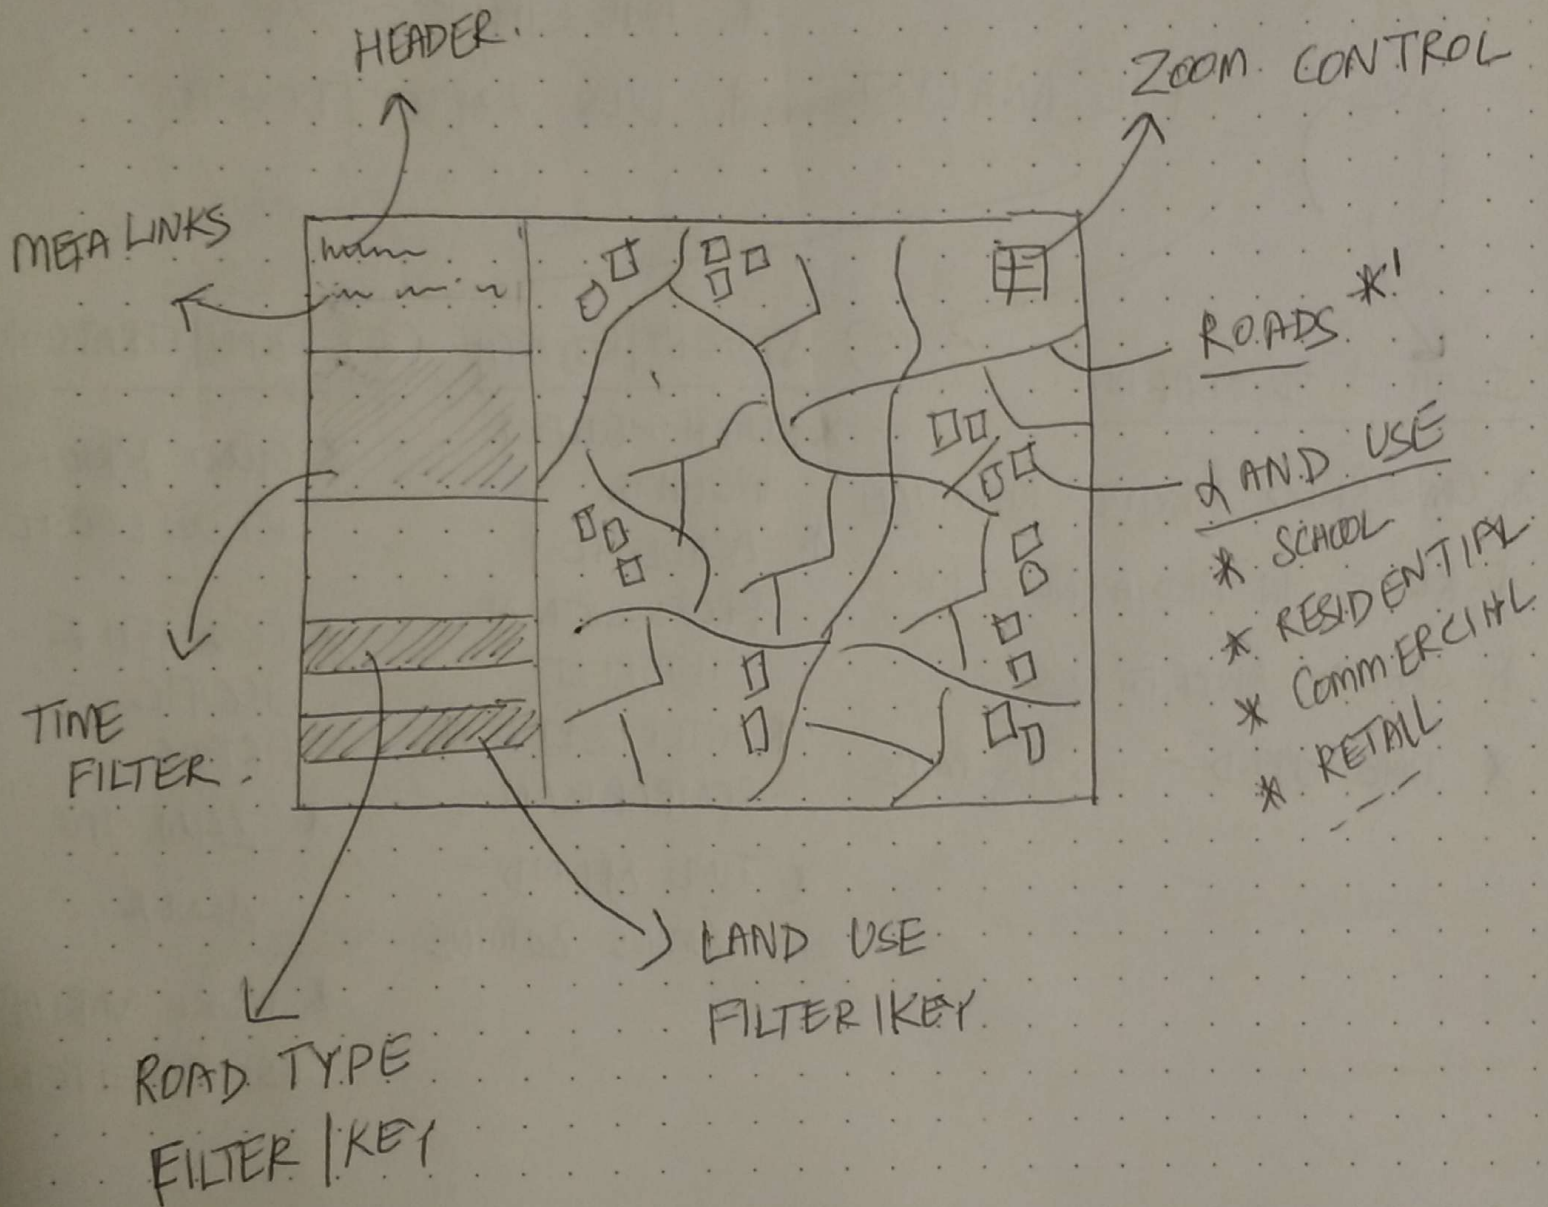 HEADER.
ZOOM CONTROL
META LINKS
ROADS *'
LAND USE
* SCHOOL
* RESIDENTIAL
* COMMERCIAL
* RETAIL
TIME
FILTER
LAND USE
FILTER/KEY
ROAD TYPE
FILTER/KEY